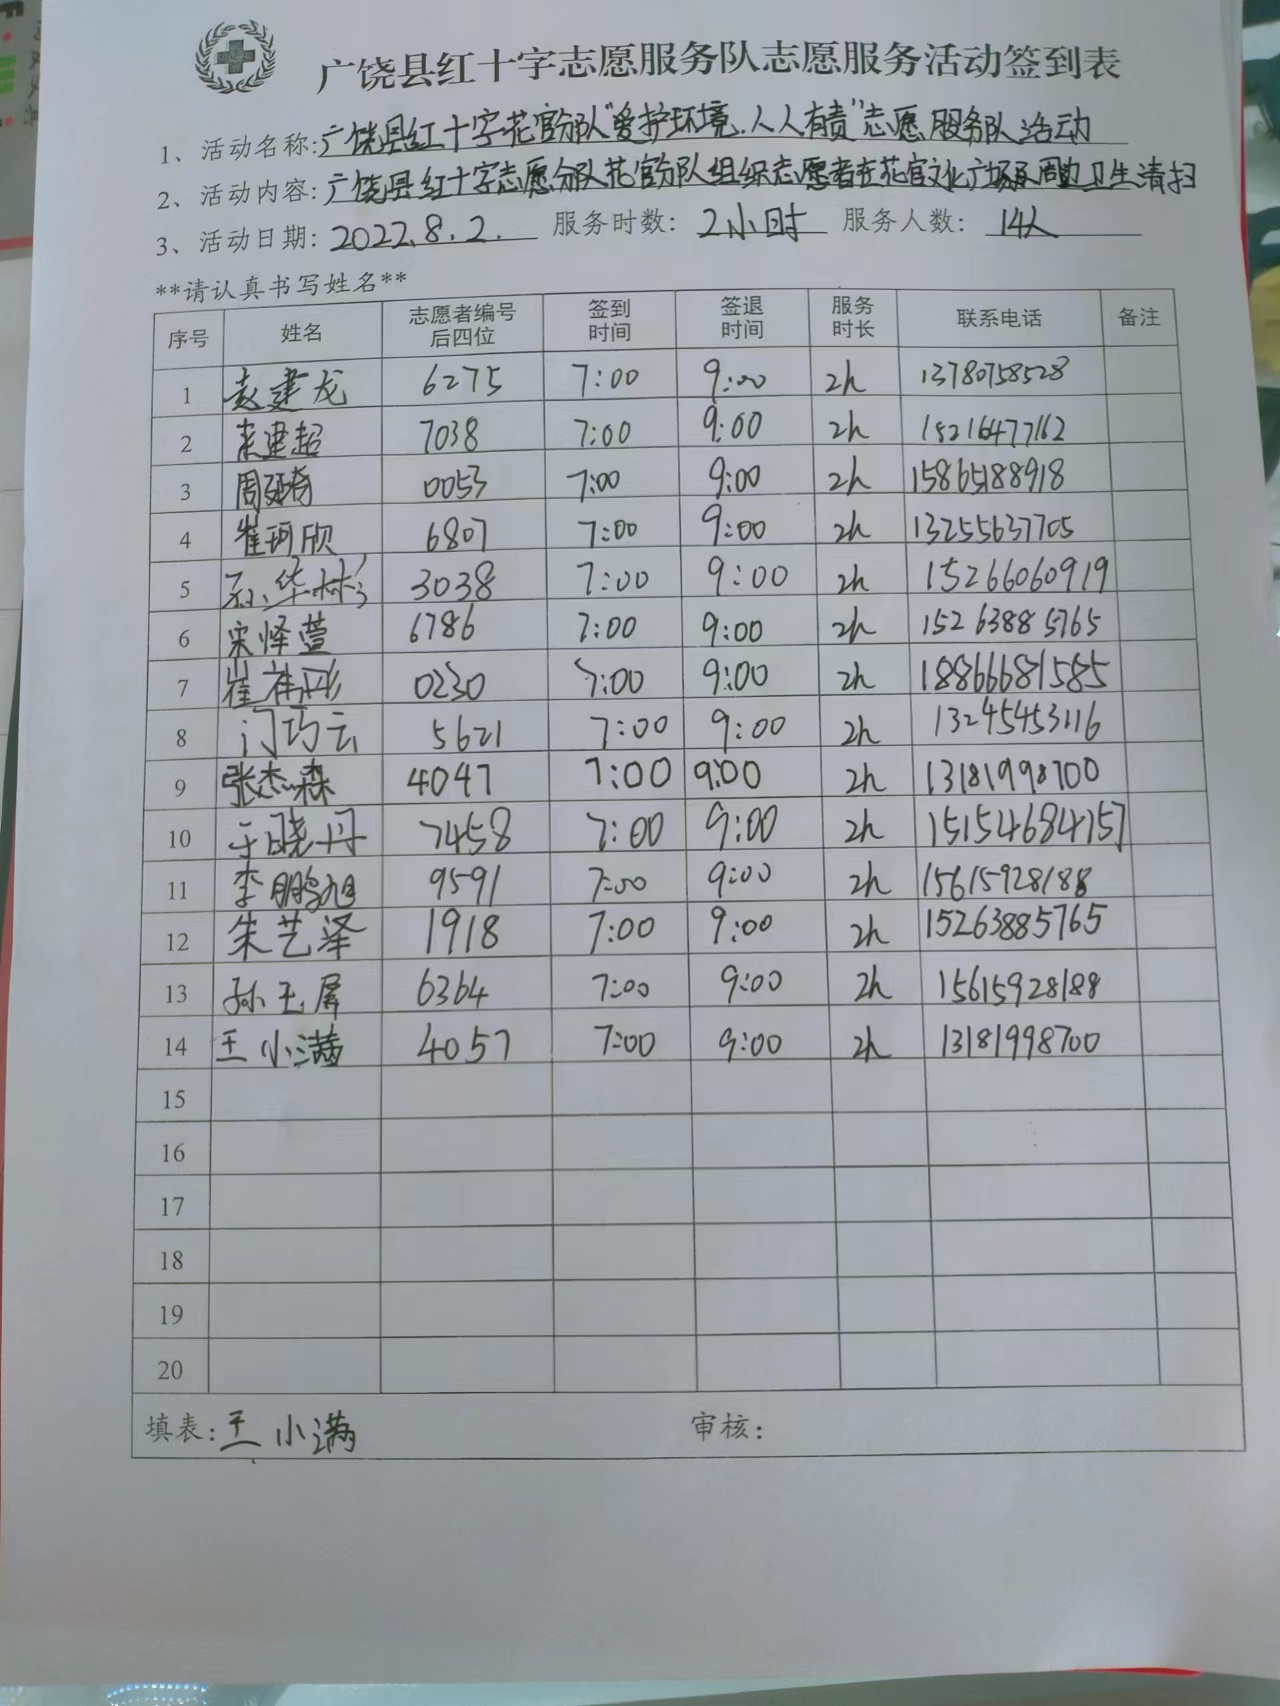 广饶县红十字志愿服务队志愿服务活动签到表
1、活动名称:广饶县红十字花官分队“爱护环境,人人有责”志愿服务队活动
2、活动内容:广饶县红十字志愿分队花官分队组织志愿者在花官文化广场及周边卫生清扫
3、活动日期: 2022.8.2. 服务时数: 2小时 服务人数: 14人
**请认真书写姓名**
序号 姓名 志愿者编号后四位 签到时间 签退时间 服务时长 联系电话 备注
1 赵建龙 6275 7:00 9:00 2h 13780758528
2 建超 7038 7:00 9:00 2h 18216477162
3 周 0053 7:00 9:00 2h 15865188918
4 崔珂欣 6807 7:00 9:00 2h 13255637705
5 孙华彬 3038 7:00 9:00 2h 15266060919
6 宋怿萱 6786 7:00 9:00 2h 15263885765
7 崔 0230 7:00 9:00 2h 18866681585
8 门巧云 5621 7:00 9:00 2h 13245453116
9 张杰森 4047 7:00 9:00 2h 13181998700
10 于晓丹 7458 7:00 9:00 2h 15154684757
11 李鹏旭 9591 7:00 9:00 2h 15615928188
12 朱艺泽 1918 7:00 9:00 2h 15263885765
13 孙玉屏 6364 7:00 9:00 2h 15615928188
14 王小满 4057 7:00 9:00 2h 13181998700
15
16
17
18
19
20
填表: 王小满 审核: